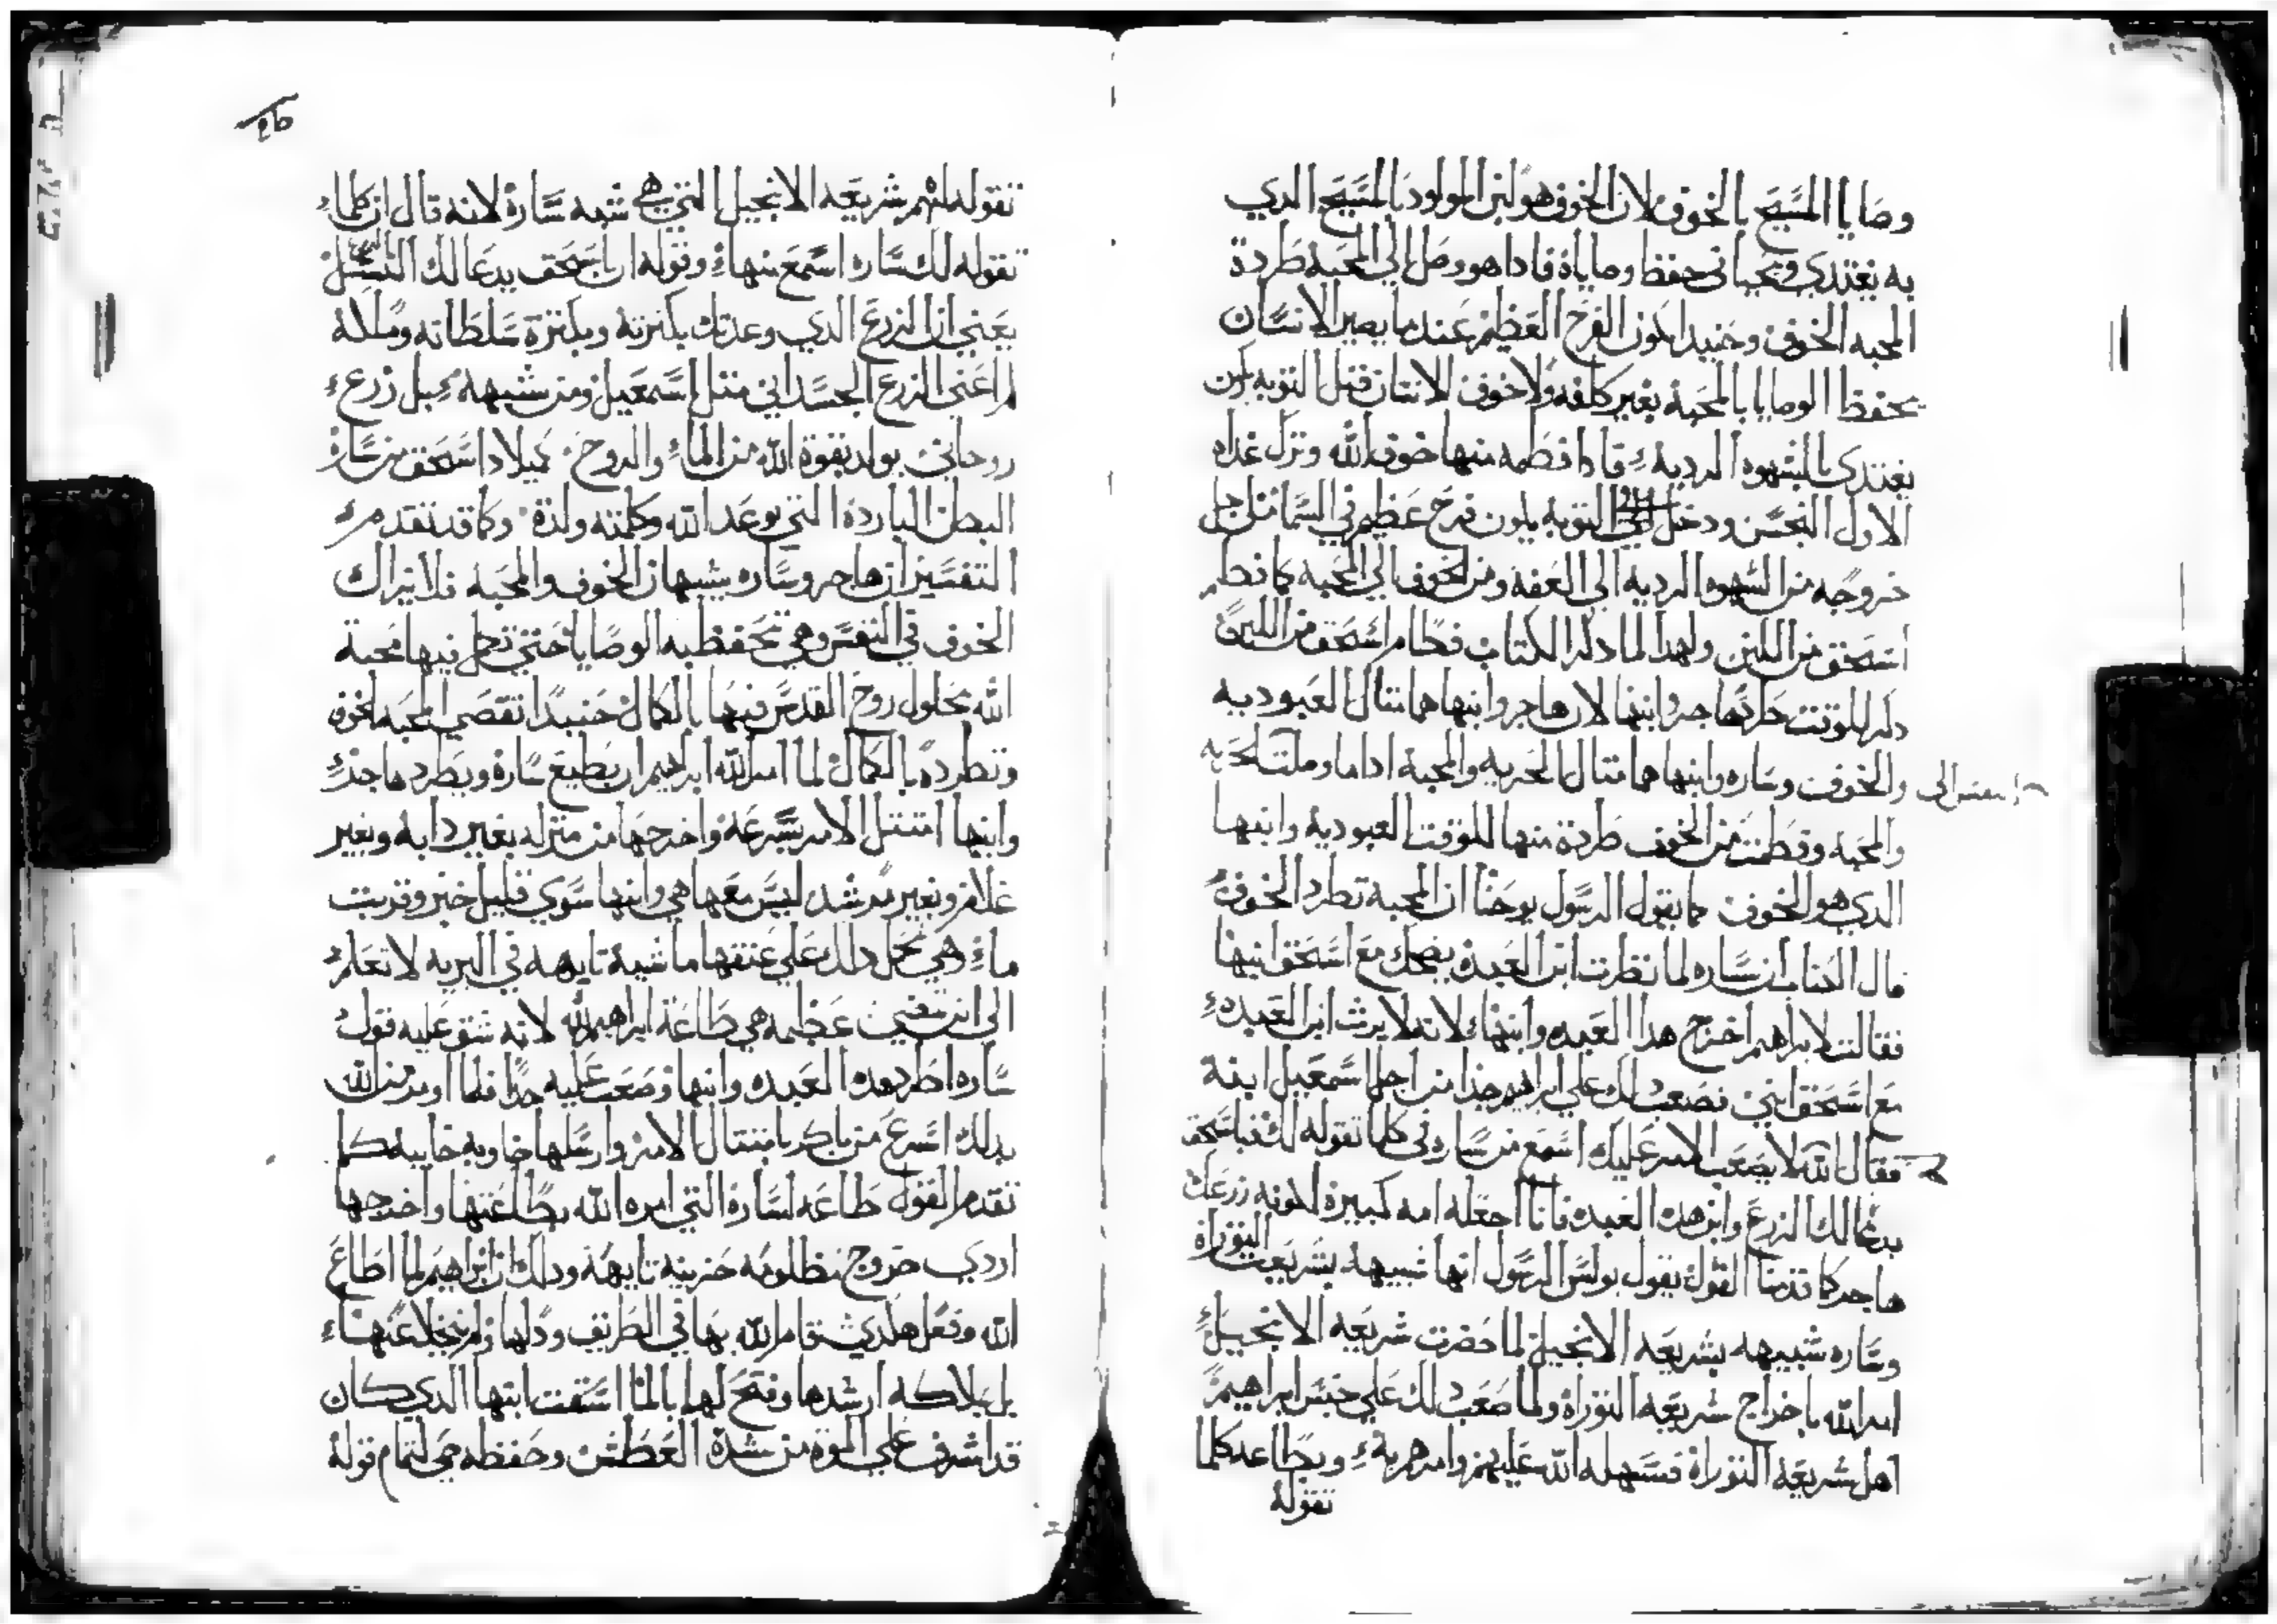 وصايا المسيح بالخوف لان الخوف هو لبن المولود بالمسيح الدي
به يغتدي ويحيا في حفظ وصاياه فادا هو وصل الي المحبه طردة
المحبه الخوف وحنيدا يكون الفرح العظيم عندما يصير الانسان
يحفظ الوصايا بالمحبه بغير كلفه ولا خوف لان الانسان قبل التوبه
يغتدي بالشهوه الرديه فادا فطمه منها خوف الله وترك غداه
الاول النجس ودخل الي التوبه يكون فرح عظيم في السما من اجل
خروجه من الشهوه الرديه الي العفه ومن الخوف الي المحبه كما فطم
اسحق من اللبن ولهدا لما دكر الكتاب فطام اسحق من اللبن
دكر للوقت طرد هاجر وابنها لان هاجر وابنها هما مثال العبوديه
والخوف وساره وابنها هما مثال الحريه والمحبة ادا ما وصلت الحريه
والمحبه وفطمت من الخوف طردة منها للوقت العبوديه وابنها
الدي هو الخوف كما يقول الرسول يوحنا ان المحبة تطرد الخوف
قال الكتاب ان ساره لما نظرت ابن العبده يضحك مع اسحق ابنها
فقالت لابراهيم اخرج هدا العبده وابنها لانه لا يرث ابن العبده
مع اسحق ابني فصعب دلك علي ابراهيم جدا من اجل اسمعيل ابنة
فقال الله لا يصعب الامر عليك اسمع من ساره في كلما تقوله لك فباسحق
يدعا لك الزرع وابن هده العبده فانا اجعله امه كبيرة لكونه زرعك
هاجر كما قدمنا القول يقول بولس الرسول انها شبيهة بشريعة التوراة
وساره شبيهه بشريعه الانجيل لما حضرت شريعه الانجيل
امر الله باخراج شريعه التوراة ولما صعب دلك علي جنس ابراهيم
اهل شريعة التوراة فسهله الله عليهم وامرهم به وبطاعه كلما
تقوله
تقوله لهم شريعه الانجيل التي هي شبه سارة لانه قال ان كلما
تقوله لك ساره اسمع منها وقوله ان باسحق يدعا لك النسل
يعني ان الزرع الدي وعدتك بكثرته وبكثرة سلطانه وملكه
لم اعني الزرع الجسداني مثل اسمعيل ومن شبهه بل زرع
روحاني يولد بقوة الله من الماء والروح كميلاد اسحق من سارة
البطن البارده التي بوعد الله وكلمته ولدة وكما قد تقدم من
التفسير ان هاجر وساره يشبهان الخوف والمحبة فلا يزال
الخوف في النفس وهي تحفظ به الوصايا حتي تحل فيها محبة
الله بحلول روح القدس فيها بالكمال حنيدا تقصي المحبه الخوف
وتطرده بالكمال لما امر الله ابراهيم ان يطيع سارة ويطرد هاجر
وابنها امتثل الامر بسرعة واخرجها من منزله بغير دابه وبغير
غلام وبغير مرشد ليس معها هي وابنها سوي قليل خبز وقربت
ماء وهي تحمل دلك علي عنقها ماشية تايهه في البريه لا تعلم
الي اين تمضي عظيمه هي طاعة ابراهيم لله لانه شق عليه قول
ساره اطرد هده العبده وابنها وصعب عليه جدا فلما اومر من الله
بدلك اسرع من باكر بامتثال الامر وارسلها خاويه خايبه كما
تقدم القول طاعه لسارة التي امره الله بطاعتها واخرجها
اردي خروج مظلومه حزينه تايهة ودلك ان ابراهيم لما اطاع
الله وفعل هكدي قام الله بها في الطريق ودلها ولم يتخلا عنها
بل بملاكه ارشدها وفتح لها بالما اسقت ابنها الدي كان
قد اشرف علي الموة من شدة العطش وحفظه حي لتمام قوله